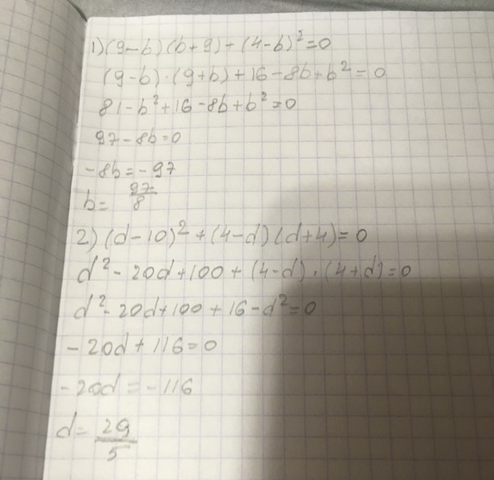 1) (9-b)(b+9)+(4-b)²=0
(9-b)·(9+b)+16-8b+b²=0
81-b²+16-8b+b²=0
97-8b=0
-8b=-97
b= 97/8
2) (d-10)²+(4-d)(d+4)=0
d²-20d+100+(4-d)·(4+d)=0
d²-20d+100+16-d²=0
-20d+116=0
-20d=-116
d= 29/5